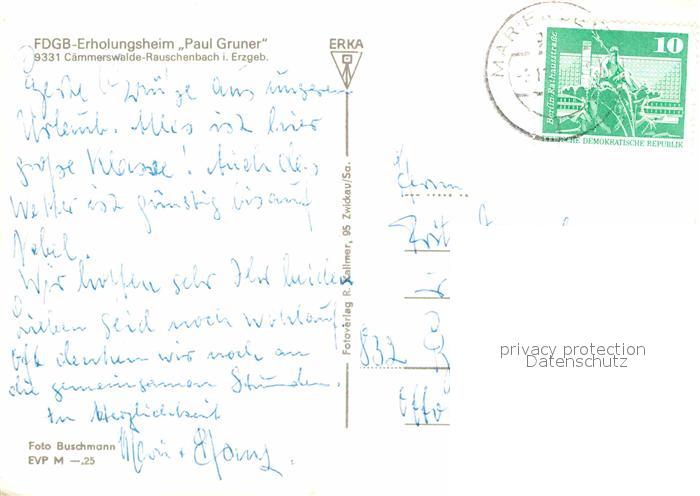 FDGB-Erholungsheim „Paul Gruner"
9331 Cämmerswalde-Rauschenbach i. Erzgeb.
ERKA
Grüße aus unserem
Urlaub. Alles ist hier
große Klasse! Auch das
Wetter ist günstig bis auf
Nebel.
Wir hoffen sehr Ihr beiden
Lieben seid noch wohlauf.
Oft denken wir noch an
die gemeinsamen Stunden.
In Herzlichkeit
Foto Buschmann
EVP M —.25
Fotoverlag R. Kallmer, 95 Zwickau/Sa.
Berlin, Rathausstraße
10
DEMOKRATISCHE REPUBLIK
Herrn
832
privacy protection
Datenschutz